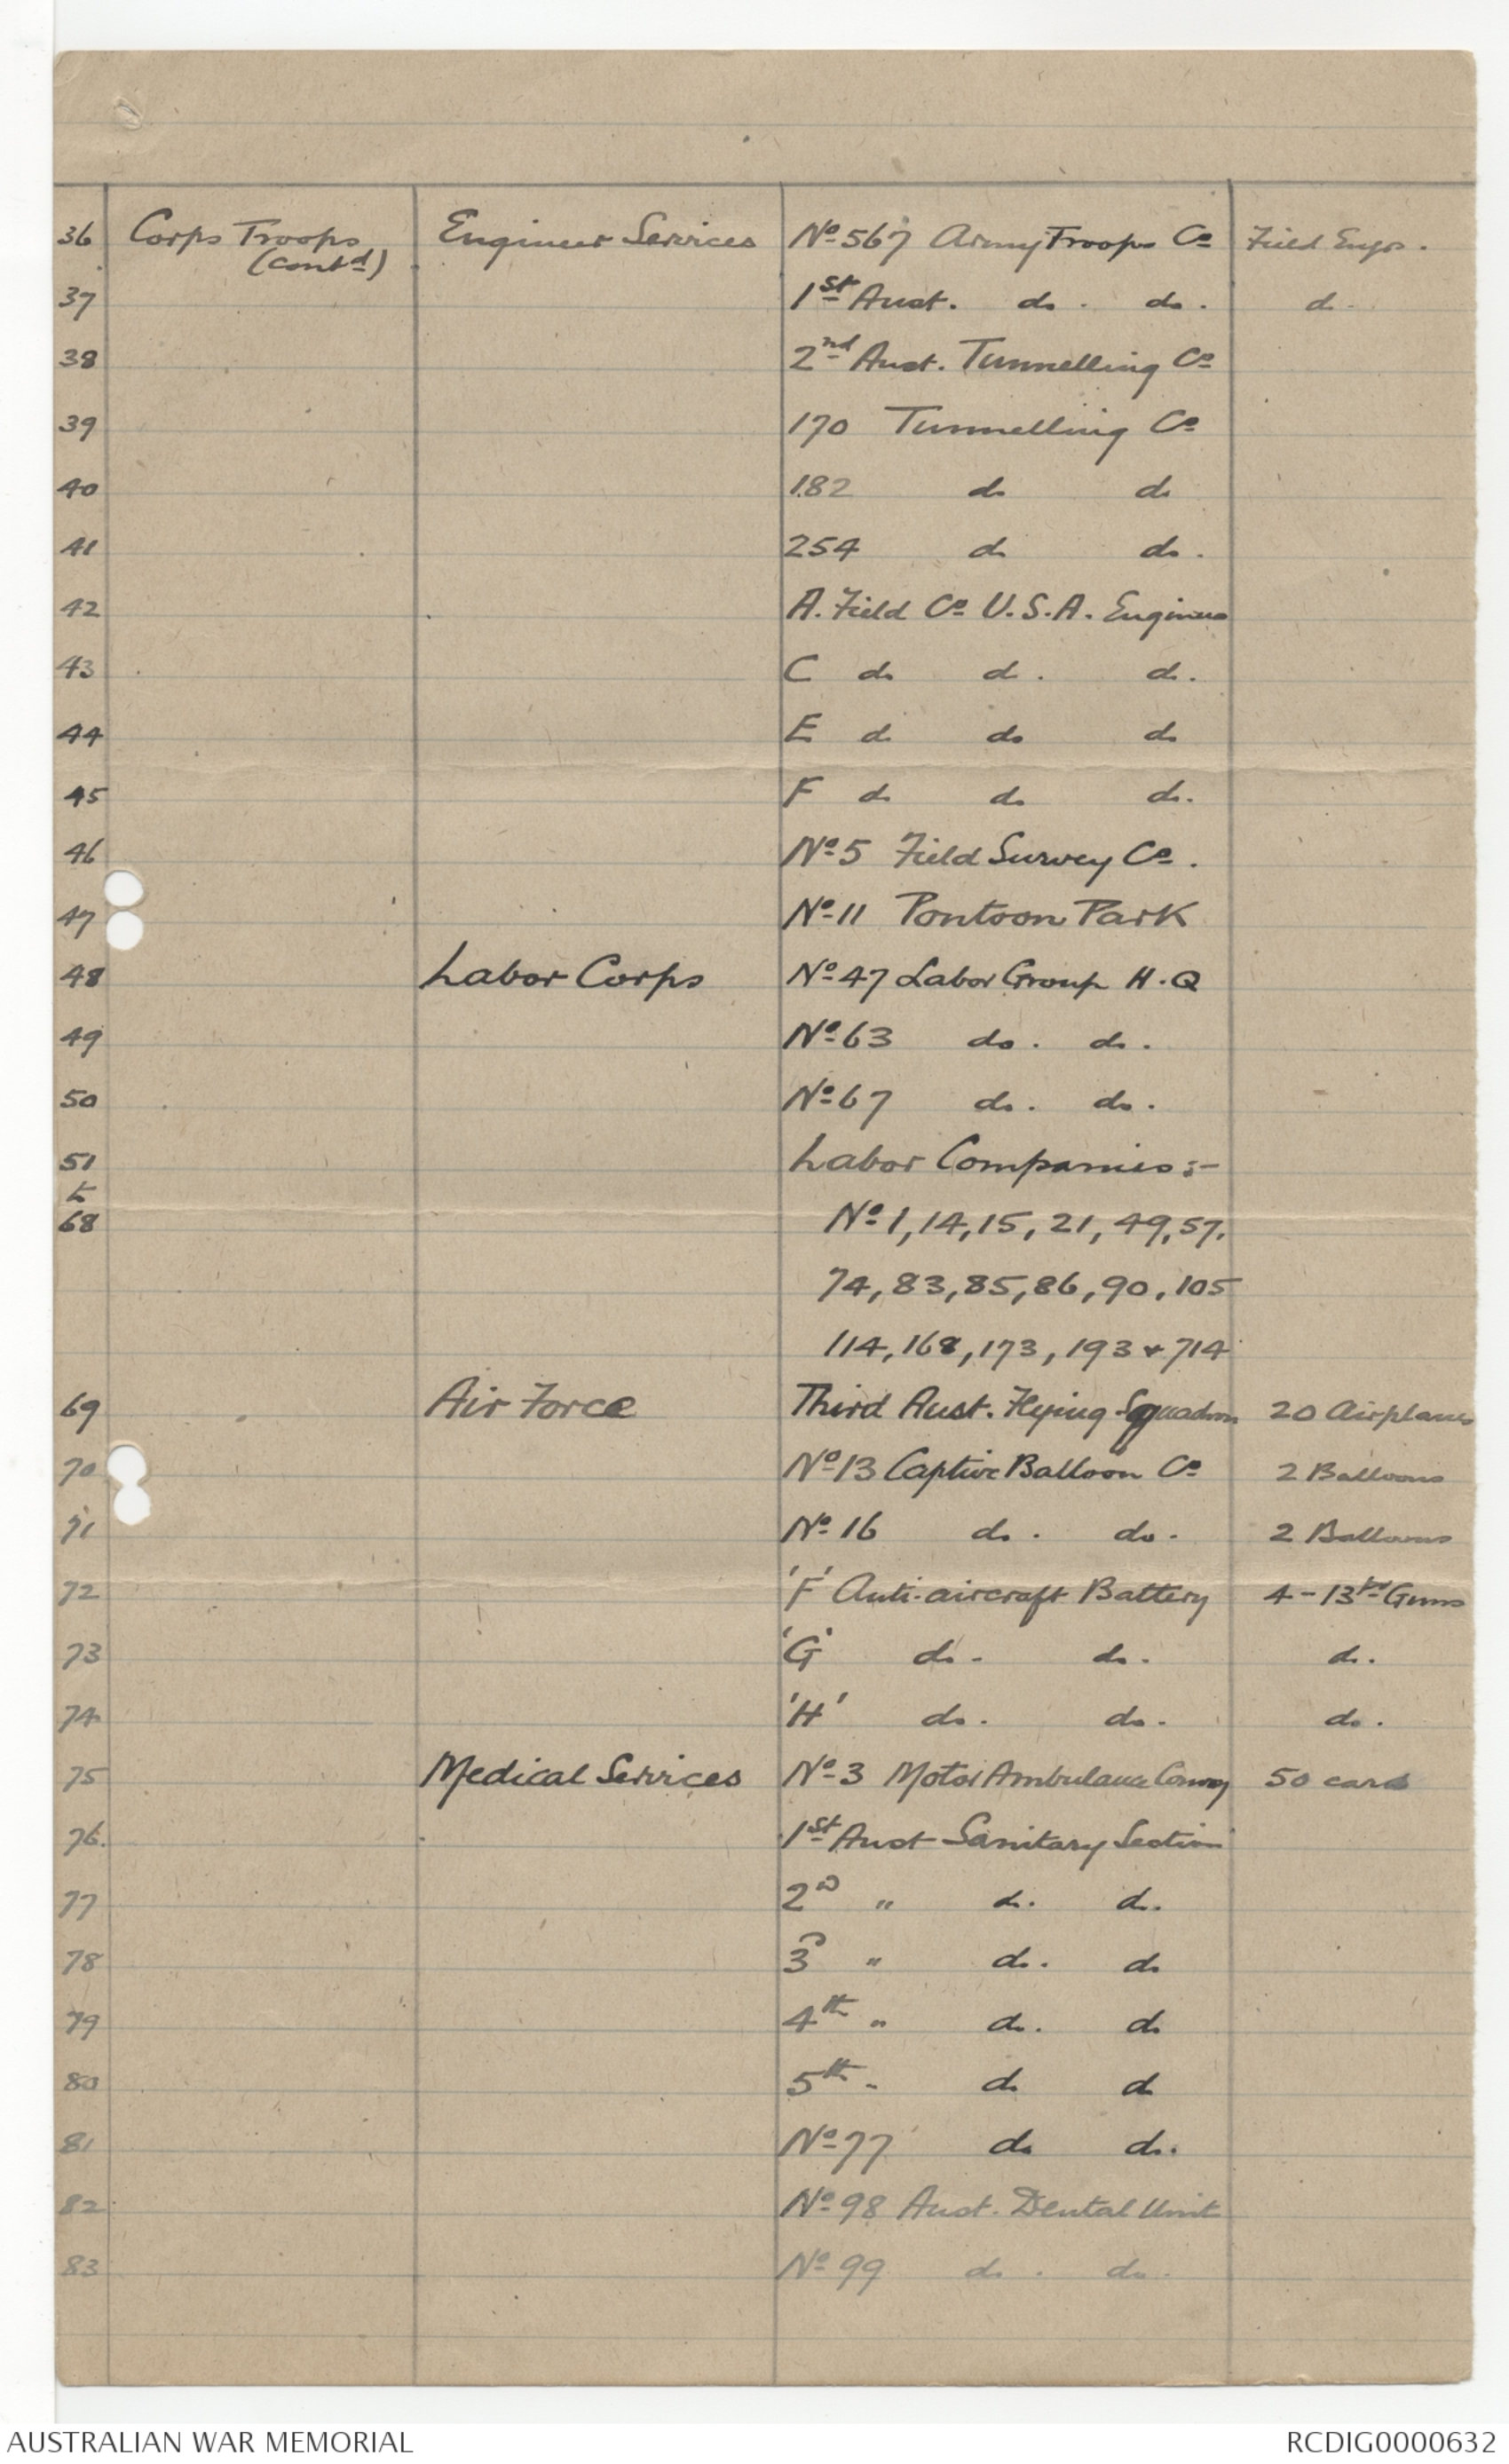 36 Corps Troops Engineer Services Nº 567 Army Troops Cº Field Engrs.
(contd)
37 1st Aust. do. do. do.
38 2nd Aust. Tunnelling Cº
39 170 Tunnelling Cº
40 182 do do
41 254 do do.
42 A. Field Cº U.S.A. Engineers
43 C do do. do.
44 E do do do
45 F do do do.
46 Nº 5 Field Survey Cº.
47 Nº 11 Pontoon Park
48 Labor Corps Nº 47 Labor Group H.Q
49 Nº 63 do. do.
50 Nº 67 do. do.
51 Labor Companies :-
to
68 Nº 1, 14, 15, 21, 49, 57,
74, 83, 85, 86, 90, 105
114, 168, 173, 193 & 714
69 Air Force Third Aust. Flying Squadron 20 Airplanes
70 Nº 13 Captive Balloon Cº 2 Balloons
71 Nº 16 do. do. 2 Balloons
72 'F' Anti-aircraft Battery 4-13pr Guns
73 'G' do. do. do.
74 'H' do. do. do.
75 Medical Services Nº 3 Motor Ambulance Convoy 50 cars
76. 1st Aust Sanitary Section
77 2nd " do. do.
78 3rd " do. do
79 4th " do. do
80 5th " do do
81 Nº 77 do do.
82 Nº 98 Aust. Dental Unit
83 Nº 99 do. do.
AUSTRALIAN WAR MEMORIAL RCDIG0000632